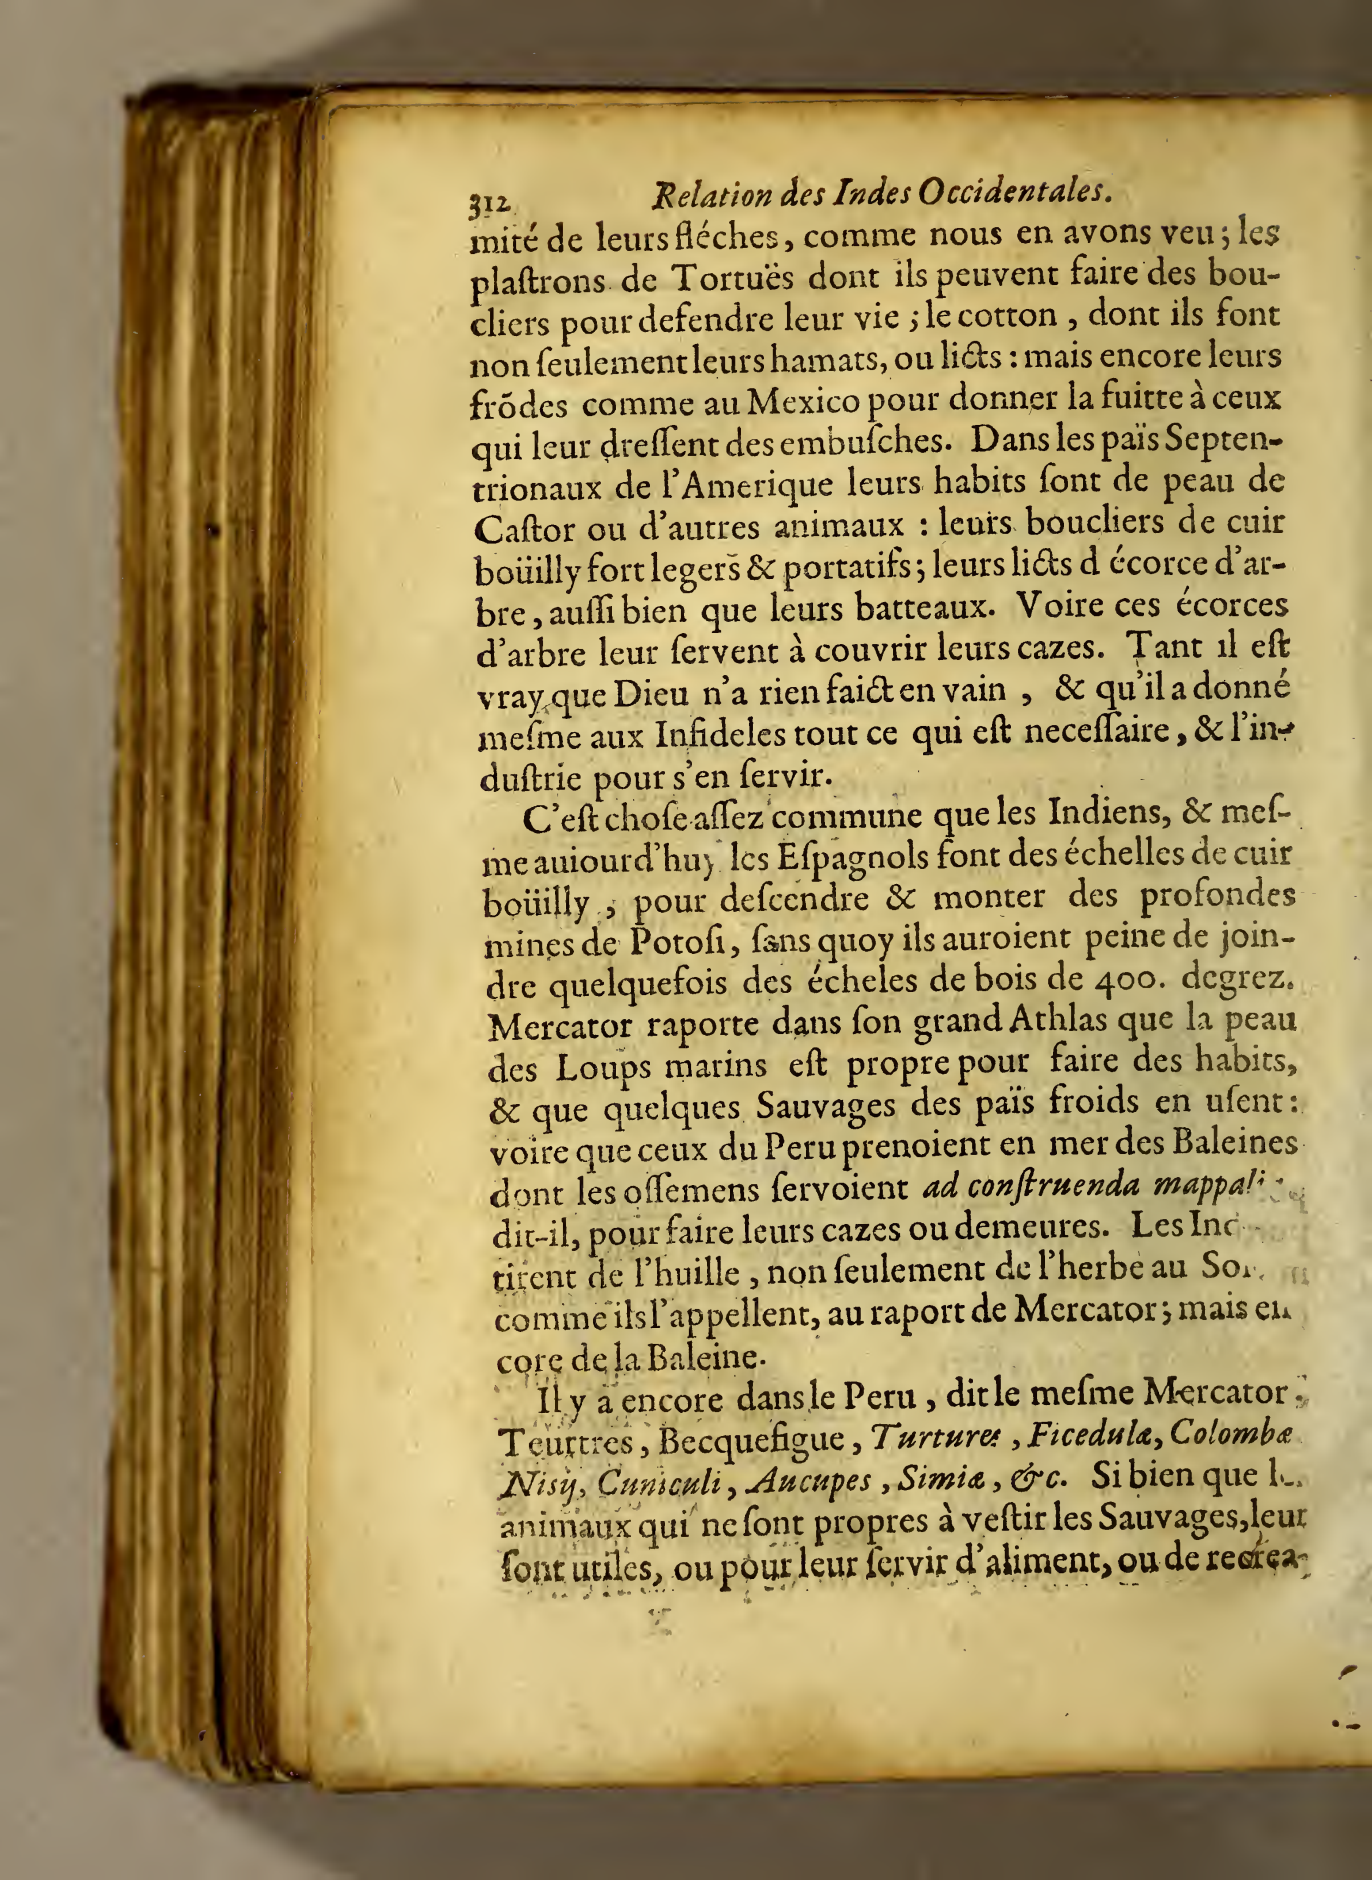 312 Relation des Indes Occidentales.
mité de leurs fléches, comme nous en avons veu; les
plaſtrons de Tortuës dont ils peuvent faire des bou-
cliers pour defendre leur vie ; le cotton , dont ils font
non ſeulement leurs hamats, ou licts : mais encore leurs
frõdes comme au Mexico pour donner la fuitte à ceux
qui leur dreſſent des embuſches. Dans les païs Septen-
trionaux de l'Amerique leurs habits ſont de peau de
Caſtor ou d'autres animaux : leurs boucliers de cuir
boüilly fort legers & portatifs ; leurs licts d écorce d'ar-
bre, auſſi bien que leurs batteaux. Voire ces écorces
d'arbre leur ſervent à couvrir leurs cazes. Tant il eſt
vray que Dieu n'a rien faict en vain , & qu'il a donné
meſme aux Infideles tout ce qui eſt neceſſaire, & l'in-
duſtrie pour s'en ſervir.
C'eſt choſe aſſez commune que les Indiens, & meſ-
me auiourd'huy les Eſpagnols font des échelles de cuir
boüilly , pour deſcendre & monter des profondes
mines de Potoſi, ſans quoy ils auroient peine de join-
dre quelquefois des écheles de bois de 400. degrez.
Mercator raporte dans ſon grand Athlas que la peau
des Loups marins eſt propre pour faire des habits,
& que quelques Sauvages des païs froids en uſent:
voire que ceux du Peru prenoient en mer des Baleines
dont les oſſemens ſervoient ad conſtruenda
dit-il, pour faire leurs cazes ou demeures. Les
tirent de l'huille , non ſeulement de l'herbe au
comme ils l'appellent, au raport de Mercator; mais en
core de la Baleine.
Il y a encore dans le Peru , dit le meſme Mercator
Teurtres, Becquefigue, Turtures , Ficedulæ, Colombæ
Nisij, Cuniculi, Aucupes , Simiæ, &c. Si bien que
animaux qui ne ſont propres à veſtir les Sauvages, leur
ſont utiles, ou pour leur ſervir d'aliment, ou de recrea-